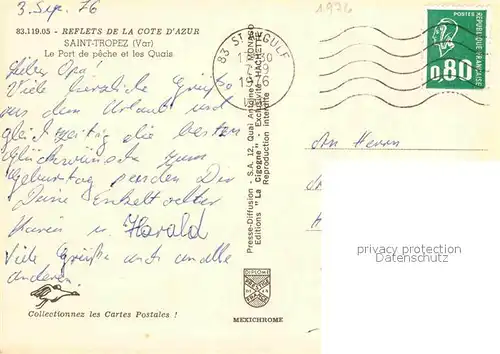 3. Sep. 76
1976
83.119.05 - REFLETS DE LA COTE D'AZUR
SAINT-TROPEZ (Var)
Le Port de pêche et les Quais
Lieber Opa!
Viele herzliche Grüße
aus dem Urlaub und
gleichzeitig die besten
Glückwünsche zum
Geburtstag senden Dir
Deine Enkeltochter
Karin u. Harald
Viele Grüße auch an alle
anderen.
Collectionnez les Cartes Postales !
83 ST
1976
POSTES
REPUBLIQUE FRANCAISE
0,80
Presse-Diffusion - S.A. 12, Quai Antoine 1er - MONACO
Editions "La Cigogne" - Exclusivité HACHETTE
Reproduction interdite
DIPLOME
PRESTIGE
DE LA
FRANCE
MEXICHROME
An Herrn
privacy protection